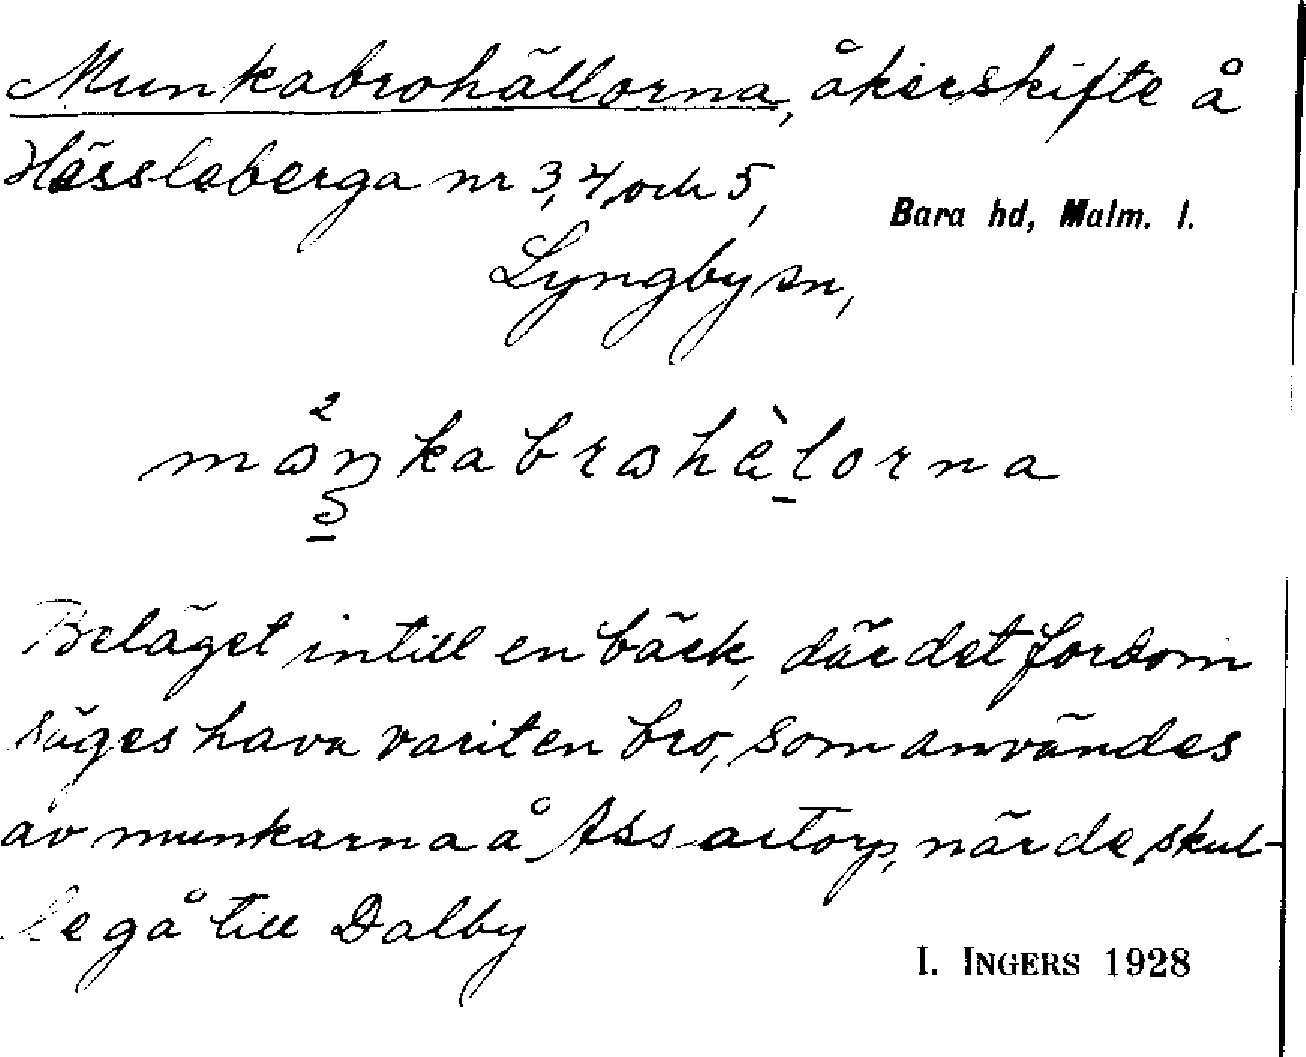 Munkabrohällorna, åkerskifte å
Hässleberga nr 3, 4, och 5,
Bara hd, Malm. l.
Lyngby sn,
Beläget intill en bäck, där det fordom
säges hava varit en bro, som användes
av munkarna å Assartorp, när de skul-
le gå till Dalby
I. INGERS 1928